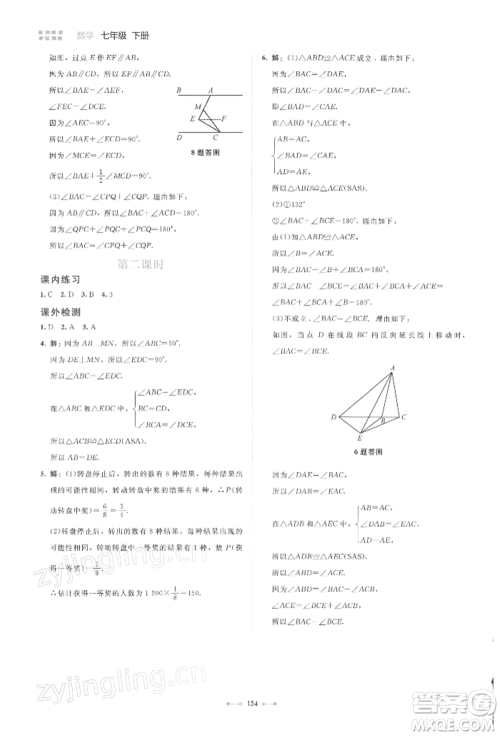 数学 七年级 下册
如图,过点 E 作 EF∥CD.
因为 AB∥CD,所以 AB∥EF∥CD.
所以∠BAE=∠AEF,
∠FEC=∠DCE.
所以∠BAE+∠ECD=90°.
因为∠MCE=∠ECD,
所以∠BAE+1/2∠MCD=90°.
(3)∠BAC=∠CPQ+∠CQP. 理由如下:
因为 AB∥CD,
所以∠BAC+∠ACD=180°.
因为∠CPQ+∠CQP+∠PCQ=180°,
所以∠BAC=∠CPQ+∠CQP.
A B M E F C D
8题答图
第二课时
课内练习
1. C 2. D 3. B 4. 3
课外检测
1. D 2. A 3. A
4. 解:因为 AB⊥MN,所以∠ABC=90°.
因为 DE⊥MN,所以∠EDC=90°.
所以∠ABC=∠EDC.
在△ABC 和△EDC 中,
∠ABC=∠EDC,
BC=DC,
∠ACB=∠ECD,
所以△ABC≌△EDC(ASA).
所以 AB=DE.
5. 解:(1)转盘停止后,转出的数有 8 种结果,每种结果出
现的可能性相同,转动转盘中奖的结果有 6 种,故 P(转
动转盘中奖)=6/8=3/4.
(2)转盘停止后,转出的数有 8 种结果,每种结果出现的
可能性相同,转动转盘中一等奖的结果有 1 种,故 P(获
一等奖)=1/8.
∴估计获得一等奖的人数为 1 200×1/8=150.
6. 解:(1)△ABD≌△ACE 成立. 理由如下:
因为∠BAC=∠DAE,
所以∠BAC+∠BAE=∠DAE+∠BAE,
即∠BAD=∠CAE.
在△ABD 与△ACE 中,
AB=AC,
∠BAD=∠CAE,
AD=AE,
所以△ABD≌△ACE(SAS).
(2)①132°
②∠BAC+∠BCE=180°. 理由如下:
由(1)知,△ABD≌△ACE,
所以∠ABD=∠ACE.
因为∠BAC+∠ABD+∠ACB=180°,
所以 ∠BAC + ∠BCE = ∠BAC + ∠ACB +
∠ACE=180°.
(3)不成立. ∠BAC=∠BCE. 理由如下:
如图,当点 D 在线段 BC 的反向延长线上移动时,
因为∠DAE=∠BAC,
所以∠DAB=∠EAC.
A D B C E
6题答图
在△ADB 和△AEC 中,
AD=AE,
∠DAB=∠EAC,
AB=AC,
所以△ADB≌△AEC(SAS).
所以∠ABD=∠ACE.
因为∠ABD=∠BAC+∠ACB,
∠ACE=∠BCE+∠ACB,
所以∠BAC=∠BCE.
154
zyjingling.cn
zyjingling.cn
答案圈
MXQE.COM